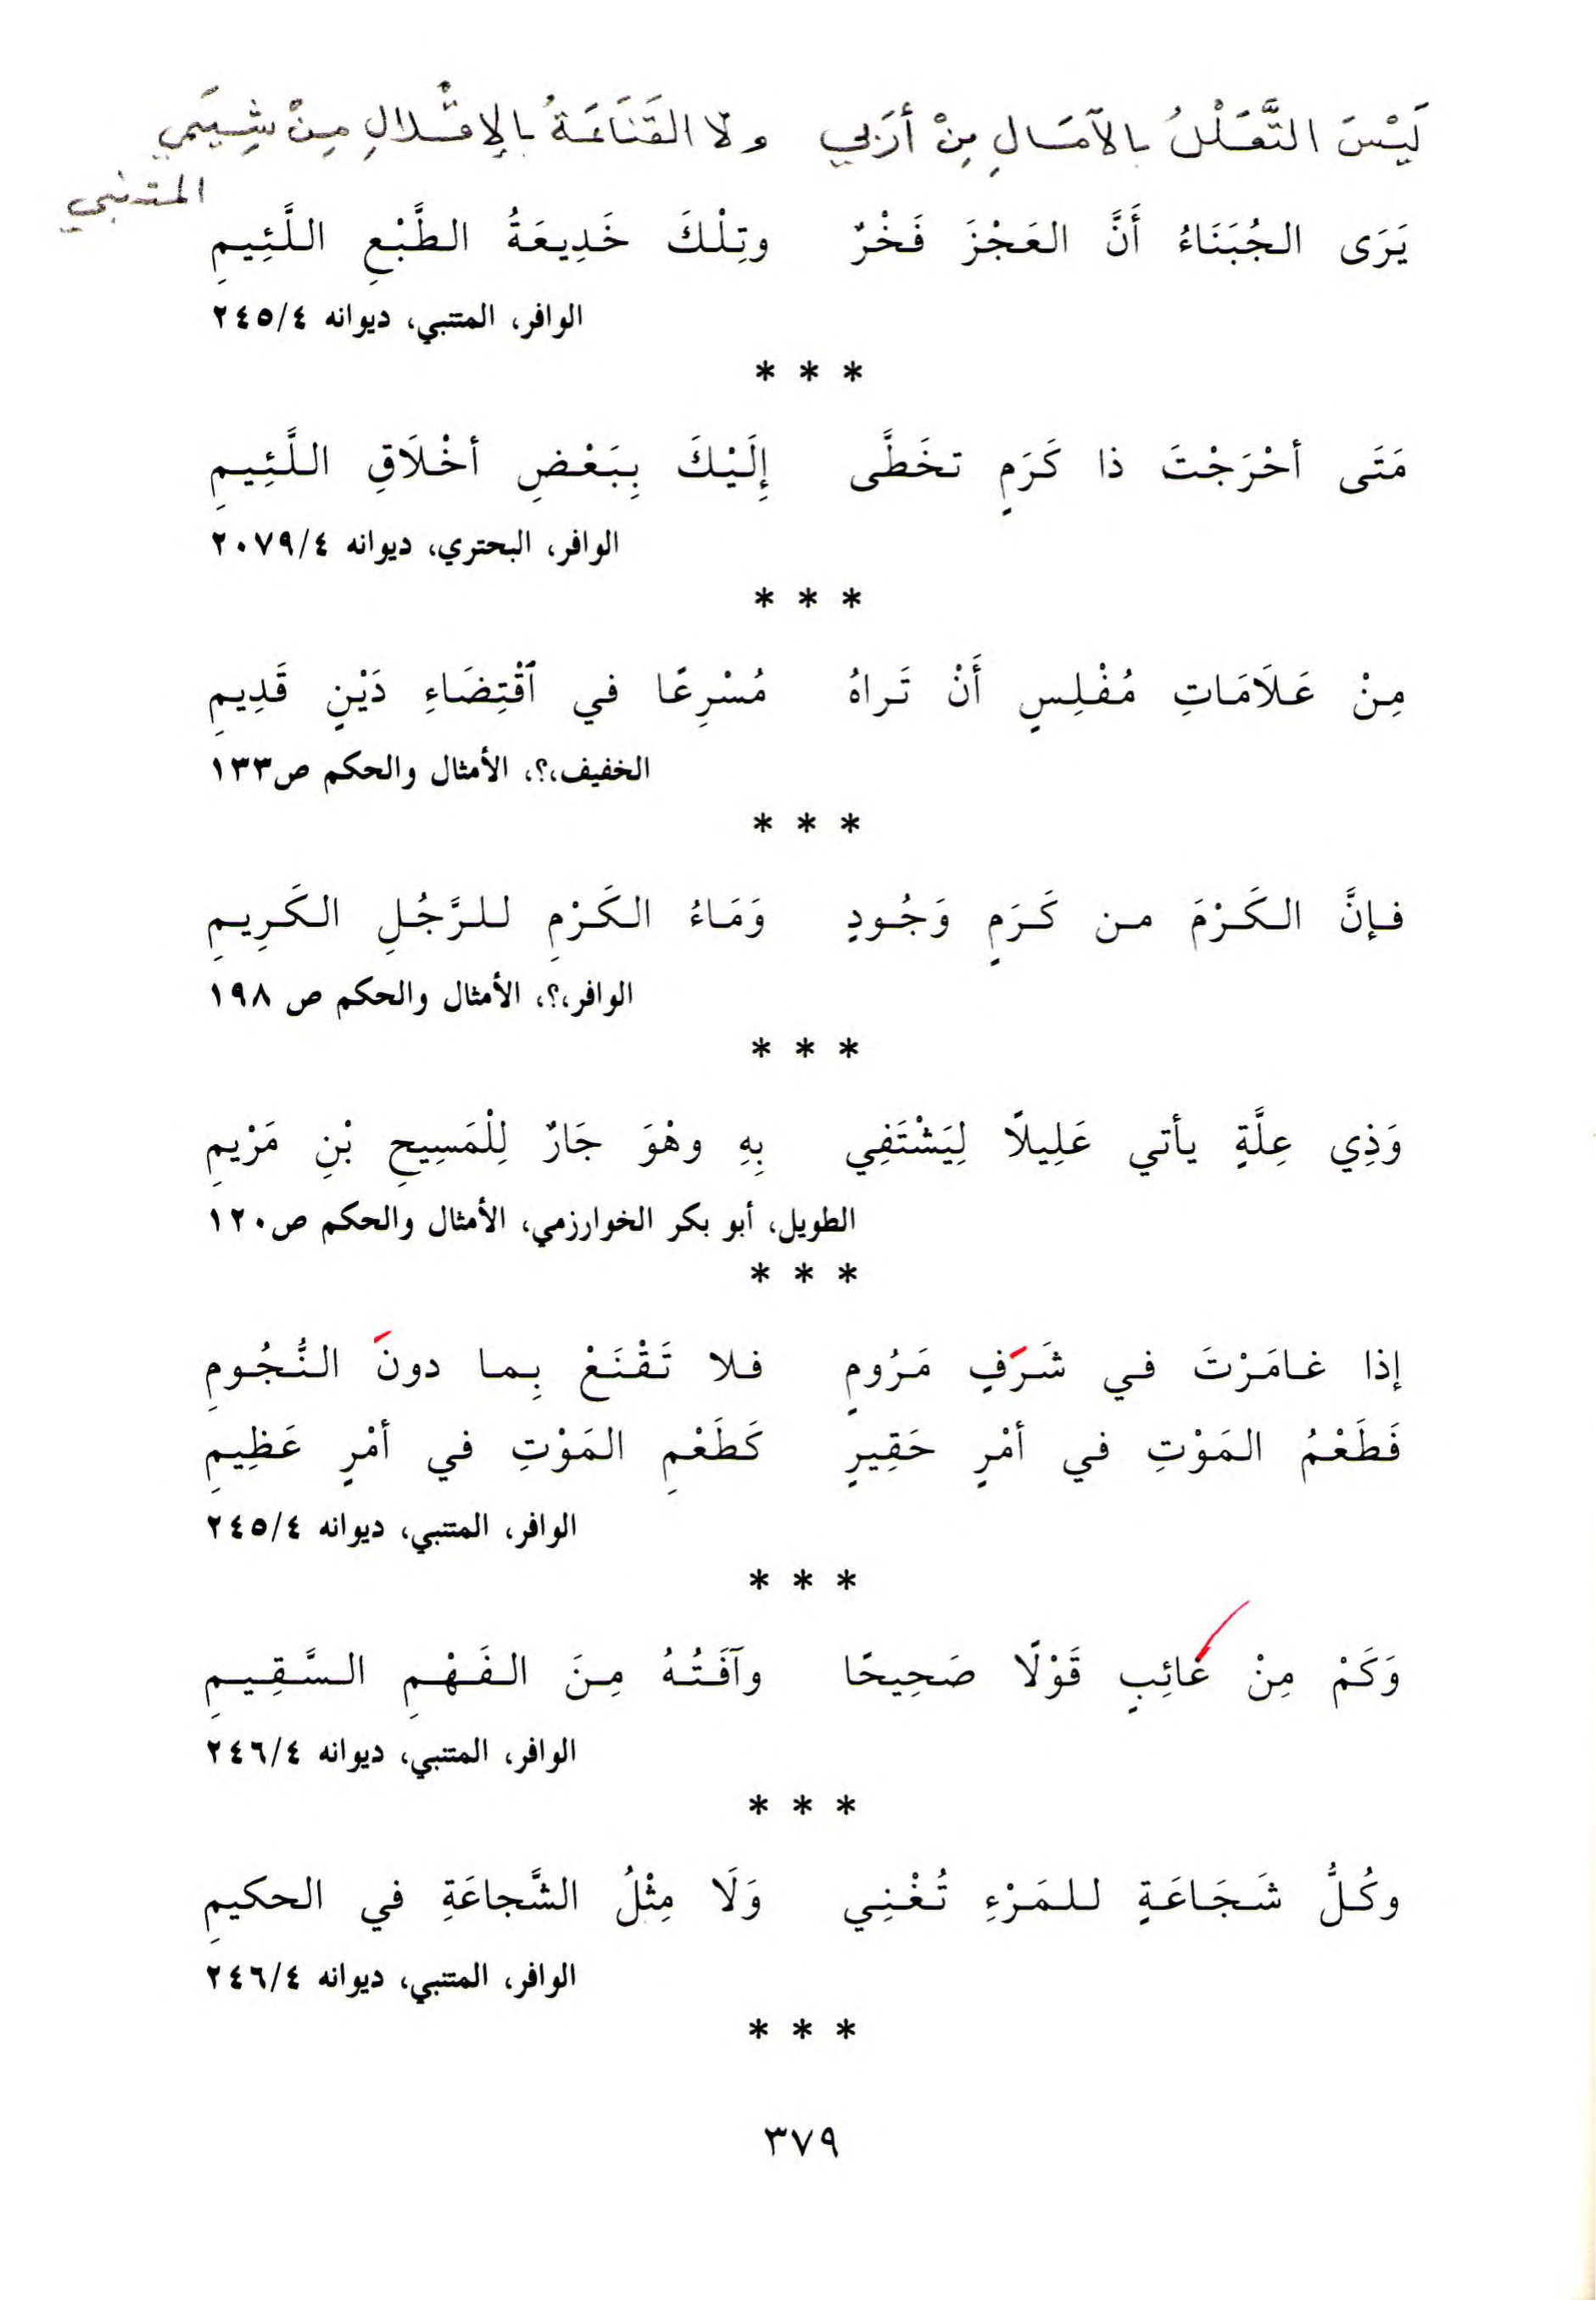 لَيْسَ التَّعَلُلُ بالآمَالِ مِنْ أرَبي ولَا القَنَاعَةُ بالإقْلالِ مِنْ شِيَمي
المتنبي
يَرَى الجُبَنَاءُ أَنَّ العَجْزَ فَخْرٌ وتِلْكَ خَدِيعَةُ الطَّبْعِ اللَّئِيمِ
الوافر، المتنبي، ديوانه ٢٤٥/٤
* * *
مَتَى أحْرَجْتَ ذا كَرَمٍ تخَطَّى إِلَيْكَ بِبَعْضِ أخْلَاقِ اللَّئِيمِ
الوافر، البحتري، ديوانه ٢٠٧٩/٤
* * *
مِنْ عَلَامَاتِ مُفْلِسٍ أَنْ تَراهُ مُسْرِعًا في ٱقْتِضَاءِ دَيْنٍ قَدِيمِ
الخفيف،؟، الأمثال والحكم ص١٣٣
* * *
فإنَّ الكَرْمَ من كَرَمٍ وَجُودٍ وَمَاءُ الكَرْمِ للرَّجُلِ الكَرِيمِ
الوافر،؟، الأمثال والحكم ص ١٩٨
* * *
وَذِي عِلَّةٍ يأتي عَلِيلاً لِيَشْتَفِي بِهِ وهْوَ جَارٌ لِلْمَسِيحِ بْنِ مَرْيمِ
الطويل، أبو بكر الخوارزمي، الأمثال والحكم ص١٢٠
* * *
إذا غامَرْتَ في شَرَفٍ مَرُومٍ فلا تَقْنَعْ بِما دونَ النُّجُومِ
فَطَعْمُ المَوْتِ في أمْرٍ حَقِيرٍ كَطَعْمِ المَوْتِ في أمْرٍ عَظِيمِ
الوافر، المتنبي، ديوانه ٢٤٥/٤
* * *
وَكَمْ مِنْ عَائِبٍ قَوْلًا صَحِيحًا وآفَتُهُ مِنَ الفَهْمِ السَّقِيمِ
الوافر، المتنبي، ديوانه ٢٤٦/٤
* * *
وكُلُّ شَجَاعَةٍ للمَرْءِ تُغْنِي وَلَا مِثْلُ الشَّجاعَةِ في الحكيمِ
الوافر، المتنبي، ديوانه ٢٤٦/٤
* * *
٣٧٩